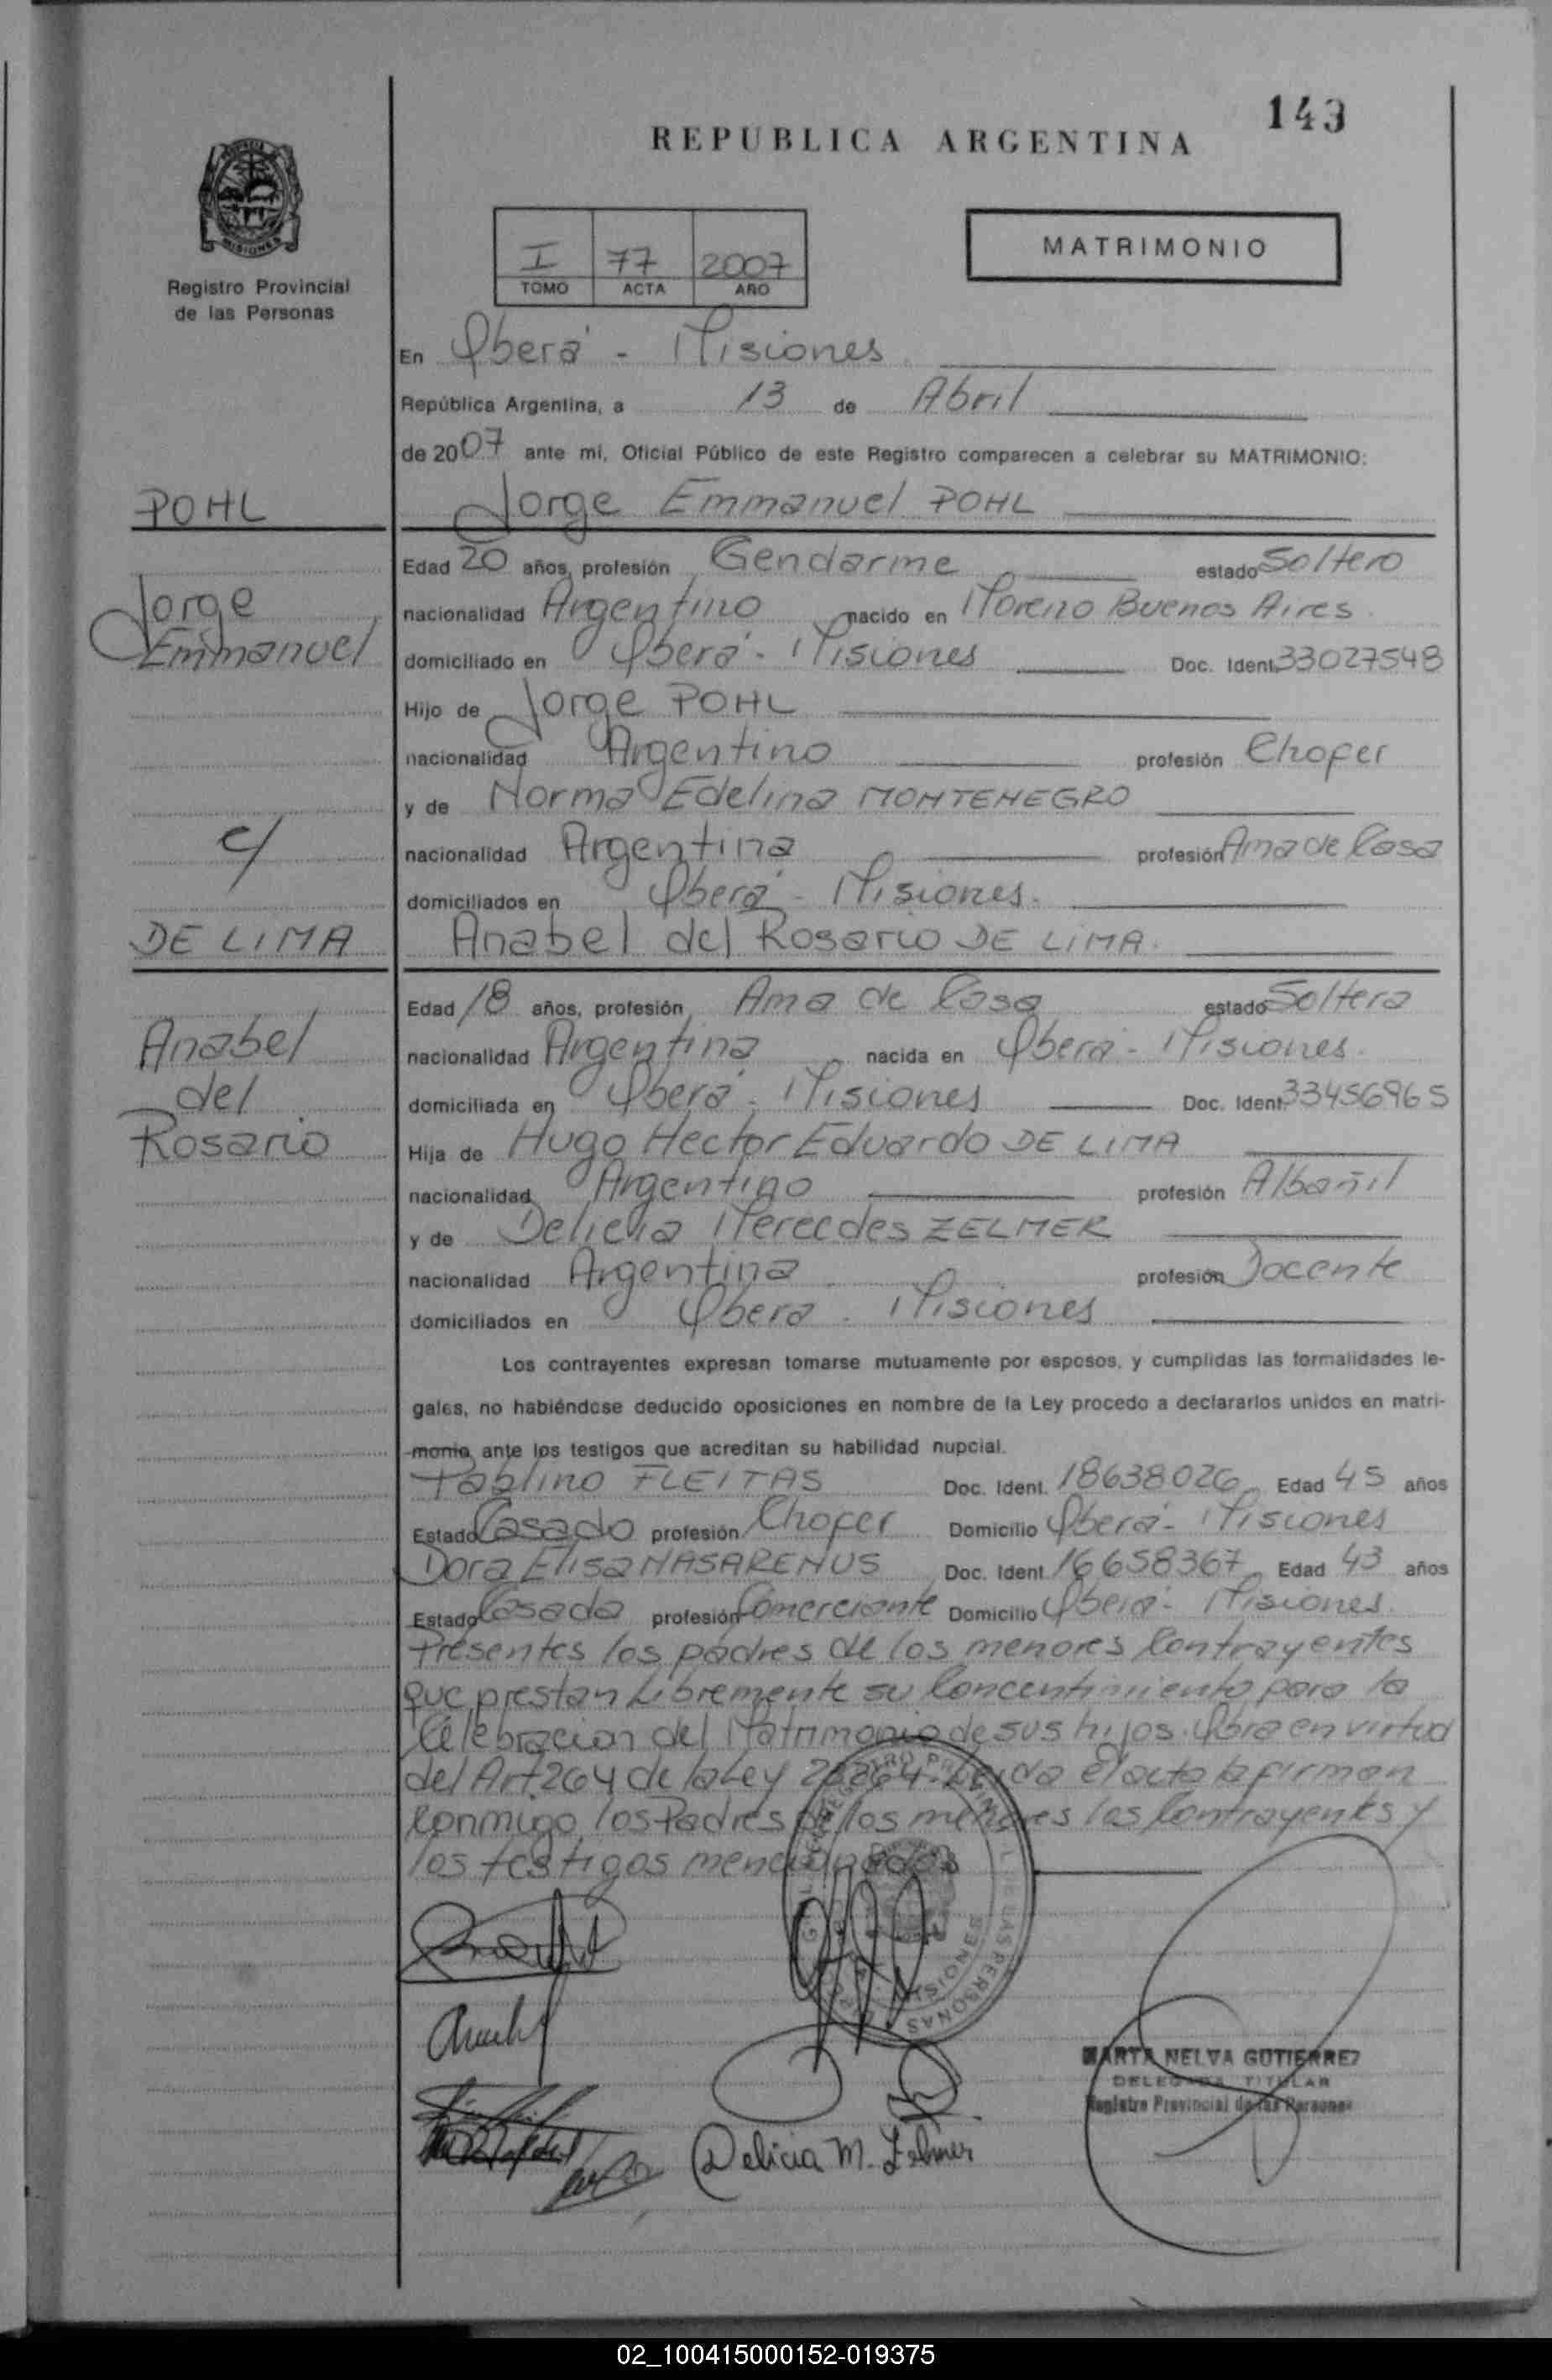 143
REPUBLICA ARGENTINA
MISIONES
Registro Provincial
de las Personas
I 77 2007
TOMO ACTA AÑO
MATRIMONIO
En Oberá - Misiones
República Argentina, a 13 de Abril
de 2007 ante mi, Oficial Público de este Registro comparecen a celebrar su MATRIMONIO:
POHL
Jorge Emmanuel POHL
Jorge
Emmanuel
Edad 20 años, profesión Gendarme estado Soltero
nacionalidad Argentino nacido en Moreno Buenos Aires
domiciliado en Oberá - Misiones Doc. Ident. 33027548
Hijo de Jorge POHL
nacionalidad Argentino profesión Chofer
y de Norma Edelina MONTENEGRO
c/
nacionalidad Argentina profesión Ama de Casa
domiciliados en Oberá - Misiones.
DE LIMA
Anabel del Rosario DE LIMA.
Anabel
del
Rosario
Edad 18 años, profesión Ama de Casa estado Soltera
nacionalidad Argentina nacida en Oberá - Misiones.
domiciliada en Oberá - Misiones Doc. Ident. 33456965
Hija de Hugo Hector Eduardo DE LIMA
nacionalidad Argentino profesión Albañil
y de Delicia Mercedes ZELMER
nacionalidad Argentina profesión Docente
domiciliados en Oberá - Misiones
Los contrayentes expresan tomarse mutuamente por esposos, y cumplidas las formalidades le-
gales, no habiéndose deducido oposiciones en nombre de la Ley procedo a declararlos unidos en matri-
monio, ante los testigos que acreditan su habilidad nupcial.
Pablino FLEITAS Doc. Ident. 18638026 Edad 45 años
Estado Casado profesión Chofer Domicilio Oberá - Misiones
Dora Elisa NASARENUS Doc. Ident. 16658367 Edad 43 años
Estado Casada profesión Comerciante Domicilio Oberá - Misiones.
Presentes los padres de los menores Contrayentes
que prestan Libremente su Concentimiento para la
Celebracion del Matrimonio de sus hijos. Obra en virtud
del Art 264 de la Ley Leida el acta la firman
Conmigo, los Padres de los menores los Contrayentes y
los testigos mencionados
Delicia M. Zelmer
MARTA NELVA GUTIERREZ
DELEGADA TITULAR
Registro Provincial de las Personas
02_100415000152-019375